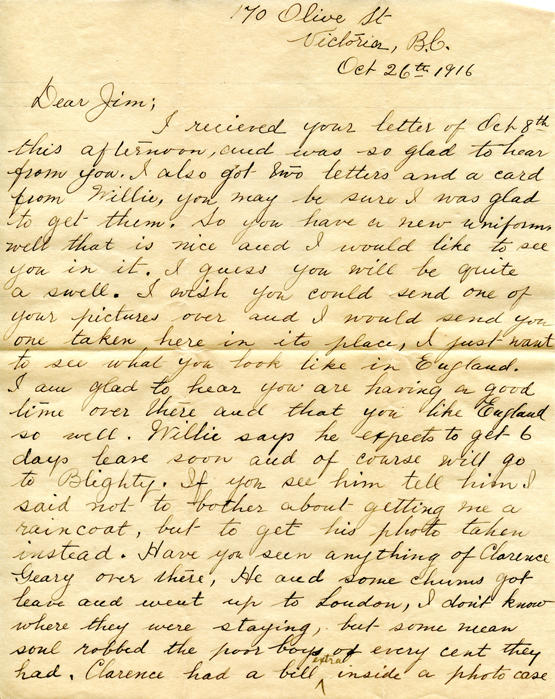 170 Olive St
Victoria, B.C.
Oct 26th 1916
Dear Jim;
I recieved your letter of Oct 8th
this afternoon, and was so glad to hear
from you. I also got two letters and a card
from Willie, you may be sure I was glad
to get them. So you have a new uniform
well that is nice and I would like to see
you in it. I guess you will be quite
a swell. I wish you could send one of
your pictures over and I would send you
one taken here in its place, I just want
to see what you look like in England.
I am glad to hear you are having a good
time over there and that you like England
so well. Willie says he expects to get 6
days leave soon and of course will go
to Blighty. If you see him tell him I
said not to bother about getting me a
raincoat, but to get his photo taken
instead. Have you seen anything of Clarence
Geary over there, He and some chums got
leave and went up to London, I don't know
where they were staying, but some mean
soul robbed the poor boys of every cent they
had. Clarence had a bill extra inside a photo case